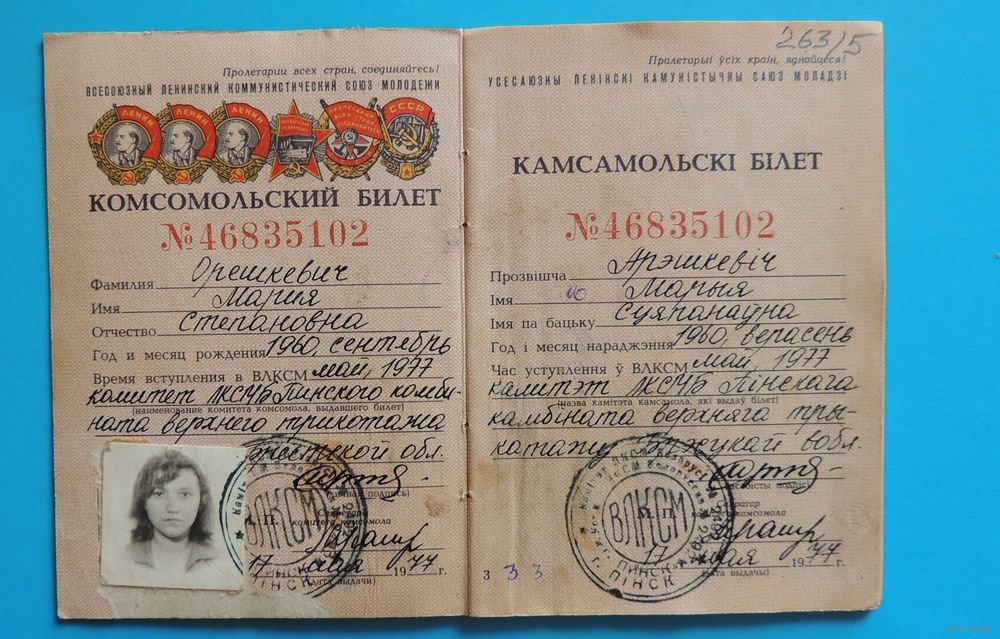 Пролетарии всех стран, соединяйтесь!
ВСЕСОЮЗНЫЙ ЛЕНИНСКИЙ КОММУНИСТИЧЕСКИЙ СОЮЗ МОЛОДЕЖИ
ЛЕНИН ЛЕНИН ЛЕНИН ПРОЛЕТАРИИ ВСЕХ СТРАН, СОЕДИНЯЙТЕСЬ СССР
КОМСОМОЛЬСКИЙ БИЛЕТ
№46835102
Фамилия Орешкевич
Имя Мария
Отчество Степановна
Год и месяц рождения 1960, сентябрь
Время вступления в ВЛКСМ май, 1977
комитет ЛКСМБ Пинского комби-
(наименование комитета комсомола, выдавшего билет)
ната верхнего трикотажа
Брестской обл.
(личная подпись)
М. П. Секретарь
комитета комсомола
ВЛКСМ
17 мая 1977 г.
(дата выдачи)
ПІНСК
263/5
Пралетарыі ўсіх краін, яднайцеся!
УСЕСАЮЗНЫ ЛЕНІНСКІ КАМУНІСТЫЧНЫ САЮЗ МОЛАДЗІ
КАМСАМОЛЬСКІ БІЛЕТ
№46835102
Прозвішча Арэшкевіч
Імя Марыя
Імя па бацьку Сцяпанаўна
Год і месяц нараджэння 1960, верасень
Час уступлення ў ВЛКСМ май, 1977
камітэт ЛКСМБ Пінскага
(назва камітэта камсамола, які выдаў білет)
камбіната верхняга тры-
катажу Брэсцкай вобл.
(асабісты подпіс)
М. П. Сакратар
камітэта камсамола
ВЛКСМ
17 мая 1977 г.
(дата выдачы)
ПИНСК
г. ПІНСК
3 3 3